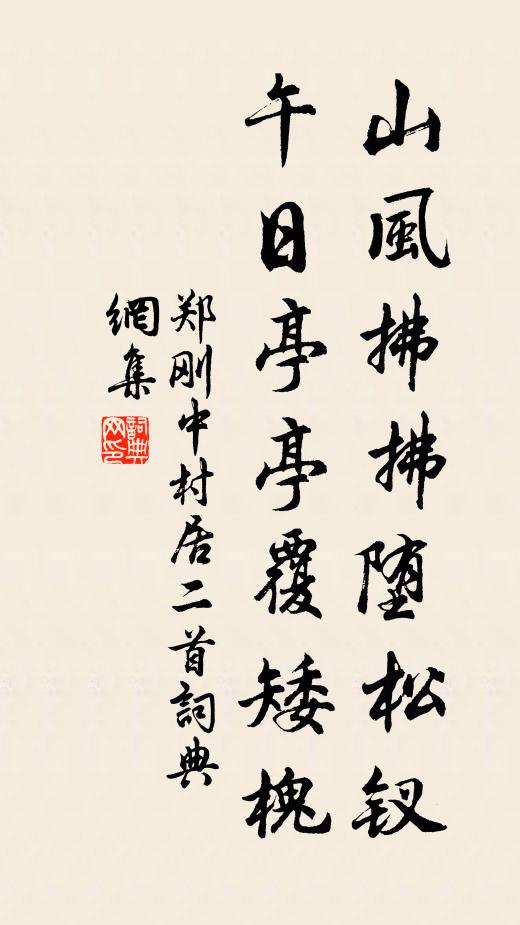 山風拂拂堕松钗
午日亭亭覆矮槐
郑刚中村居二首詞典
網集
詞典網印